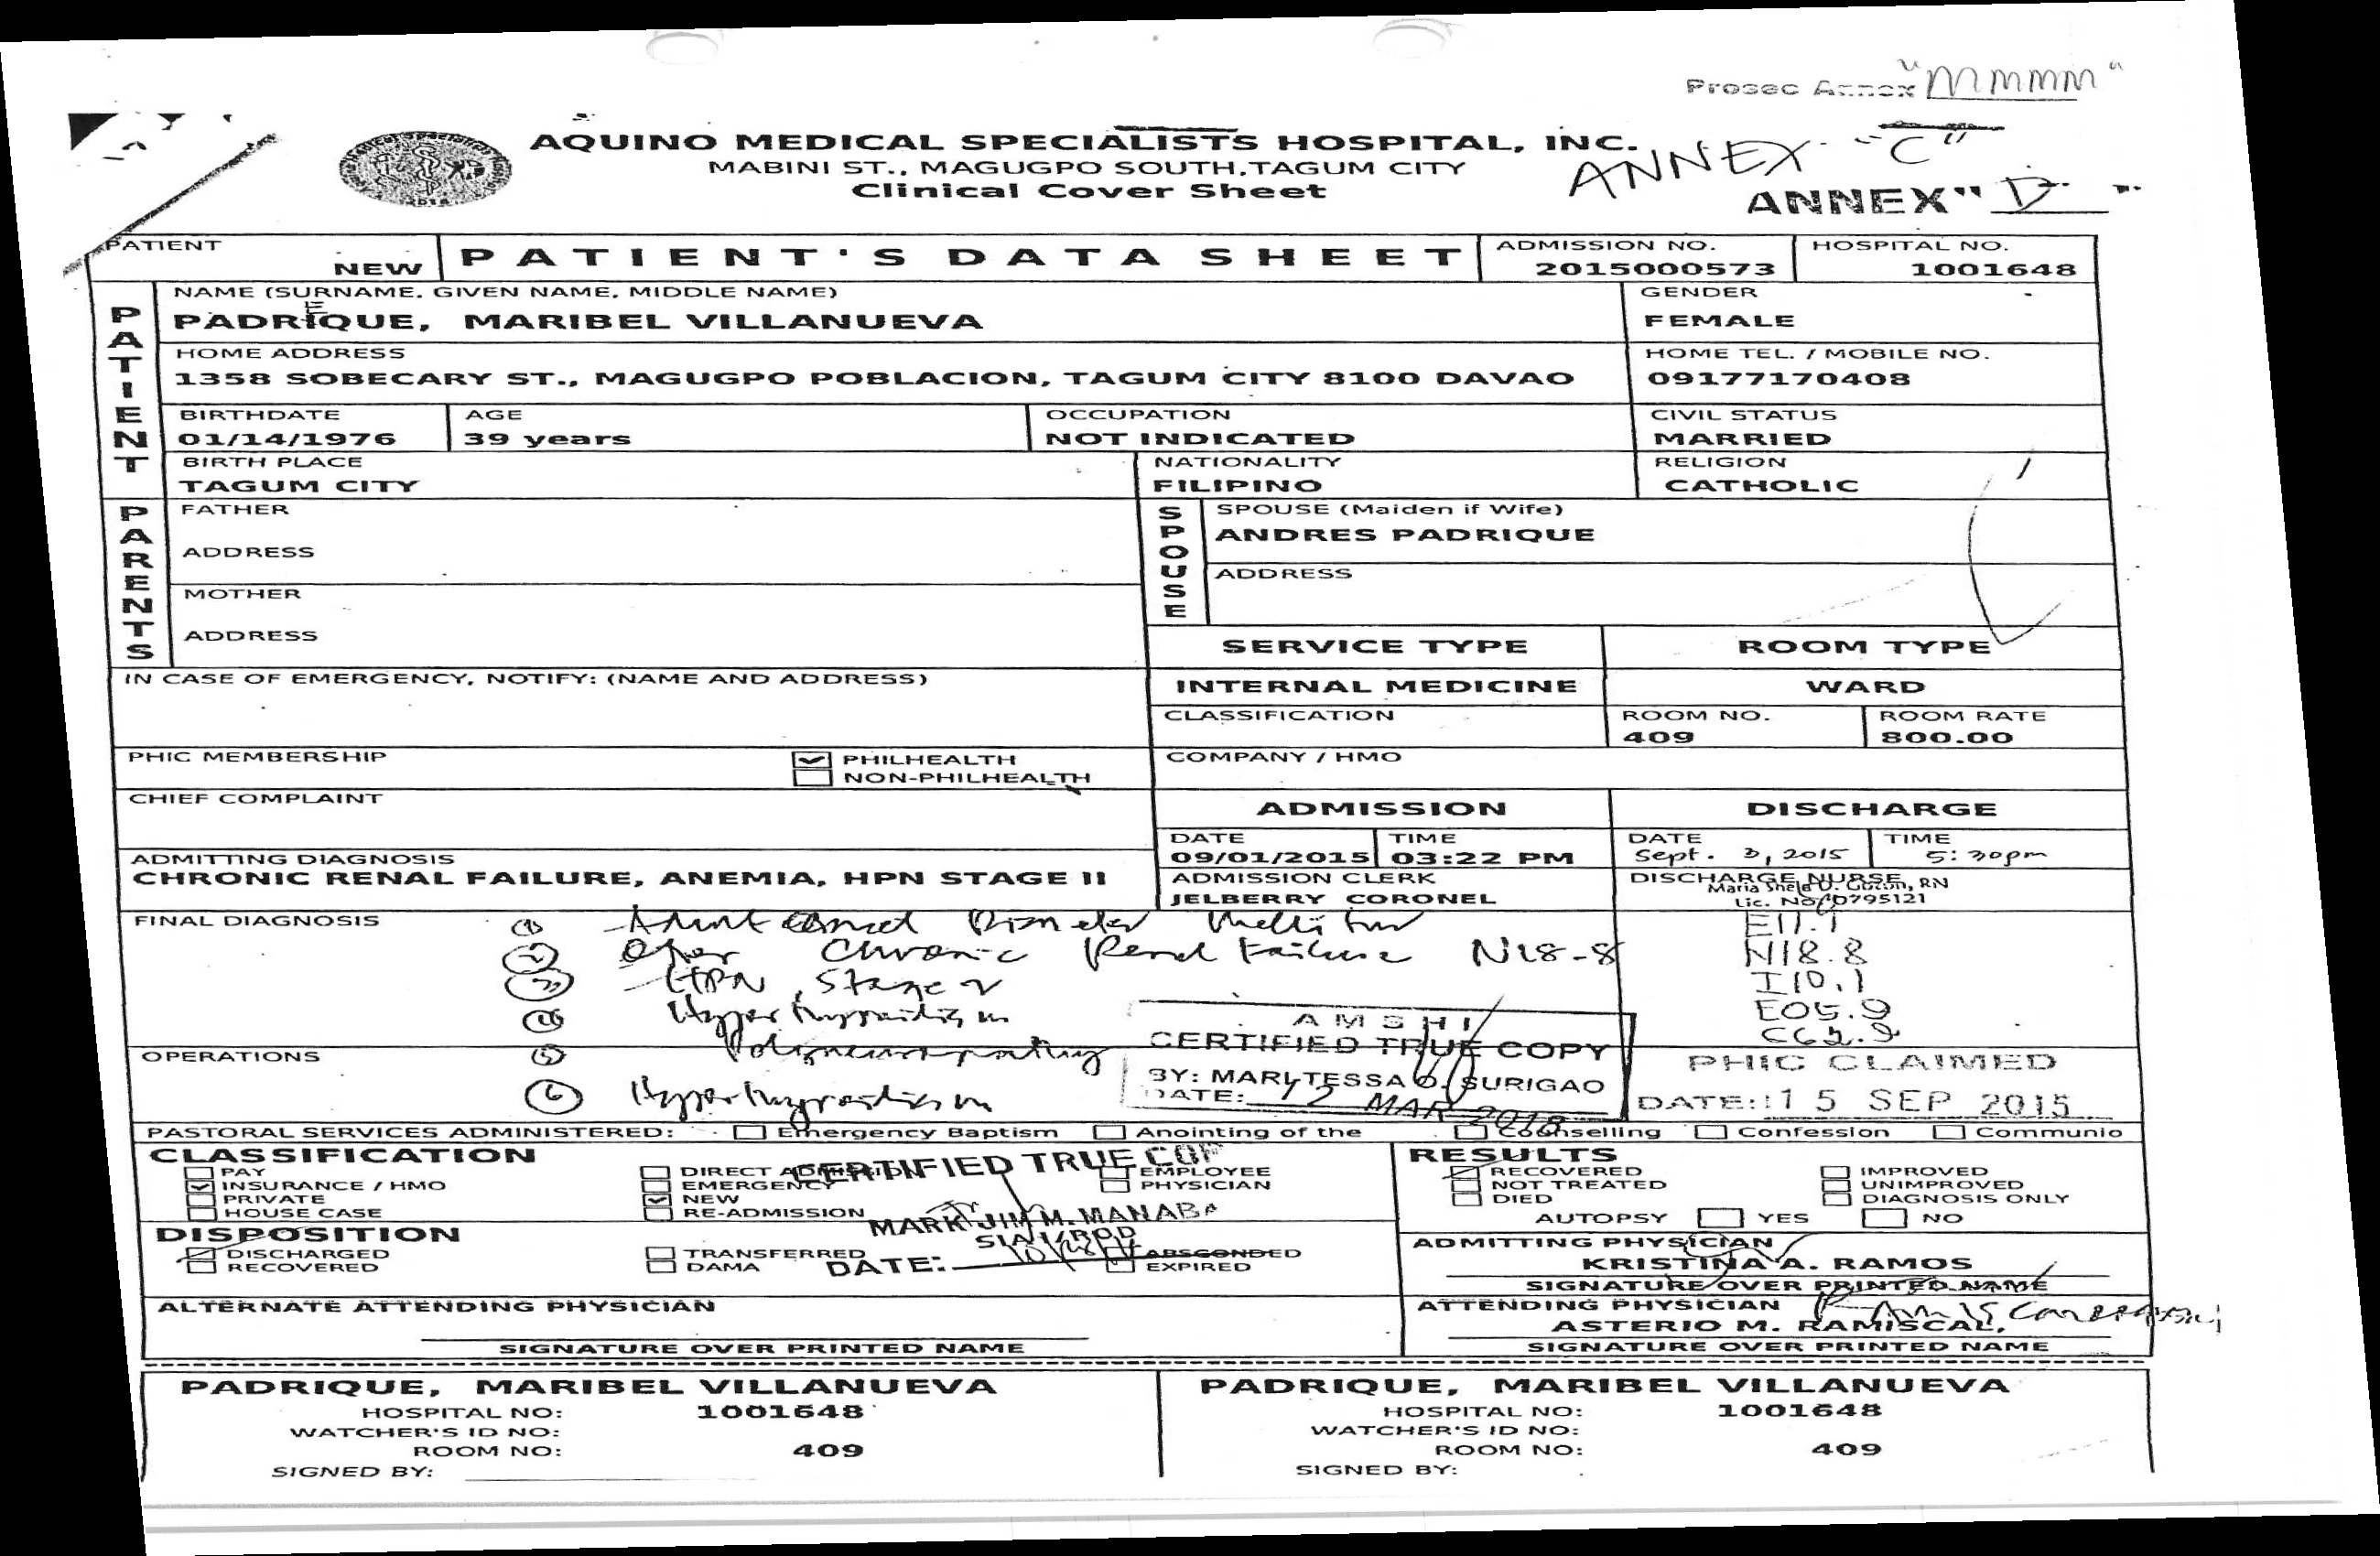 Prosec Annex "MMMM"
AQUINO MEDICAL SPECIALISTS HOSPITAL, INC.
MABINI ST., MAGUGPO SOUTH, TAGUM CITY
Clinical Cover Sheet
ANNEX "C"
ANNEX" D "
PATIENT
NEW
PATIENT'S DATA SHEET
ADMISSION NO.
2015000573
HOSPITAL NO.
1001648
PATIENT
NAME (SURNAME, GIVEN NAME, MIDDLE NAME)
E
PADRIQUE, MARIBEL VILLANUEVA
GENDER
FEMALE
HOME ADDRESS
1358 SOBECARY ST., MAGUGPO POBLACION, TAGUM CITY 8100 DAVAO
HOME TEL. / MOBILE NO.
09177170408
BIRTHDATE
01/14/1976
AGE
39 years
OCCUPATION
NOT INDICATED
CIVIL STATUS
MARRIED
BIRTH PLACE
TAGUM CITY
NATIONALITY
FILIPINO
RELIGION
CATHOLIC
PARENTS
FATHER
ADDRESS
MOTHER
ADDRESS
SPOUSE
SPOUSE (Maiden if Wife)
ANDRES PADRIQUE
ADDRESS
SERVICE TYPE
ROOM TYPE
IN CASE OF EMERGENCY, NOTIFY: (NAME AND ADDRESS)
INTERNAL MEDICINE
WARD
CLASSIFICATION
ROOM NO.
409
ROOM RATE
800.00
PHIC MEMBERSHIP
PHILHEALTH
NON-PHILHEALTH
COMPANY / HMO
CHIEF COMPLAINT
ADMISSION
DISCHARGE
DATE
09/01/2015
TIME
03:22 PM
DATE
Sept. 3, 2015
TIME
5:30pm
ADMITTING DIAGNOSIS
CHRONIC RENAL FAILURE, ANEMIA, HPN STAGE II
ADMISSION CLERK
JELBERRY CORONEL
DISCHARGE NURSE
Maria RN
Lic. No. 0795121
FINAL DIAGNOSIS
(1) Adult Onset Diabetes Mellitus
(2) Other Chronic Renal Failure N18.8
(3) HPN, Stage 2
(4) Hyperthyroidism
E11.9
N18.8
I10.1
E05.9
OPERATIONS
(5) Polyneuropathy
(6) Hyperthyroidism
AMSHI
CERTIFIED TRUE COPY
BY: MARITESSA O. SURIGAO
DATE: 12 MAR 2018
PHIC CLAIMED
DATE: 15 SEP 2015
PASTORAL SERVICES ADMINISTERED: Emergency Baptism Anointing of the Counselling Confession Communio
CLASSIFICATION
PAY
INSURANCE / HMO
PRIVATE
HOUSE CASE
DIRECT ADMISSION
EMERGENCY
NEW
RE-ADMISSION
EMPLOYEE
PHYSICIAN
CERTIFIED TRUE COP
MARK JIM M. MANABA
DATE:
RESULTS
RECOVERED
NOT TREATED
DIED
IMPROVED
UNIMPROVED
DIAGNOSIS ONLY
AUTOPSY YES NO
DISPOSITION
DISCHARGED
RECOVERED
TRANSFERRED
DAMA
ABSCONDED
EXPIRED
ADMITTING PHYSICIAN
KRISTINA A. RAMOS
SIGNATURE OVER PRINTED NAME
ALTERNATE ATTENDING PHYSICIAN
SIGNATURE OVER PRINTED NAME
ATTENDING PHYSICIAN
ASTERIO M. RAMISCAL,
SIGNATURE OVER PRINTED NAME
PADRIQUE, MARIBEL VILLANUEVA
HOSPITAL NO: 1001648
WATCHER'S ID NO:
ROOM NO: 409
SIGNED BY:
PADRIQUE, MARIBEL VILLANUEVA
HOSPITAL NO: 1001648
WATCHER'S ID NO:
ROOM NO: 409
SIGNED BY: